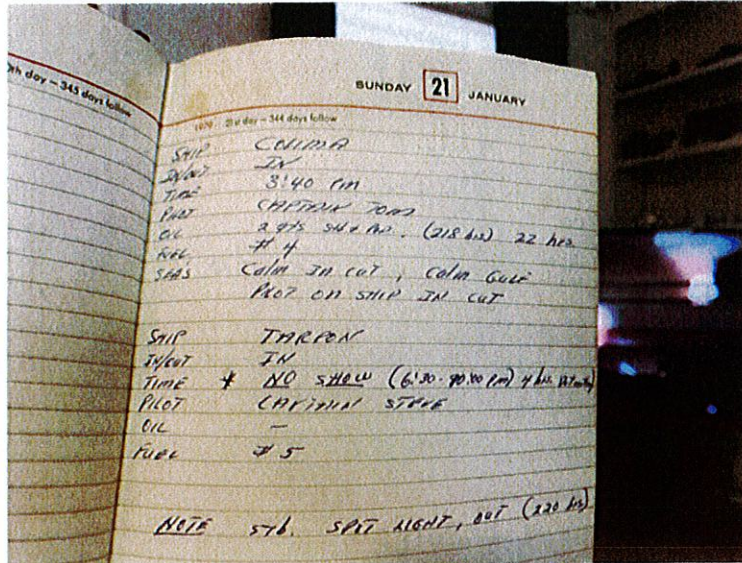 th day – 345 days follow
SUNDAY 21 JANUARY
1979 21st day – 344 days follow
SHIP COLIMA
IN/OUT IN
TIME 3:40 PM
PILOT CAPTAIN TOM
OIL 2 qts (218 hrs) 22 hrs
FUEL # 4
SEAS Calm IN CUT, Calm GULF
PILOT ON SHIP IN CUT
SHIP TARPON
IN/OUT IN
TIME * NO SHOW (6:30 - 10:00 PM) 4 hrs
PILOT CAPTAIN STEVE
OIL —
FUEL # 5
NOTE stb. SPOT LIGHT, OUT (220 hrs)